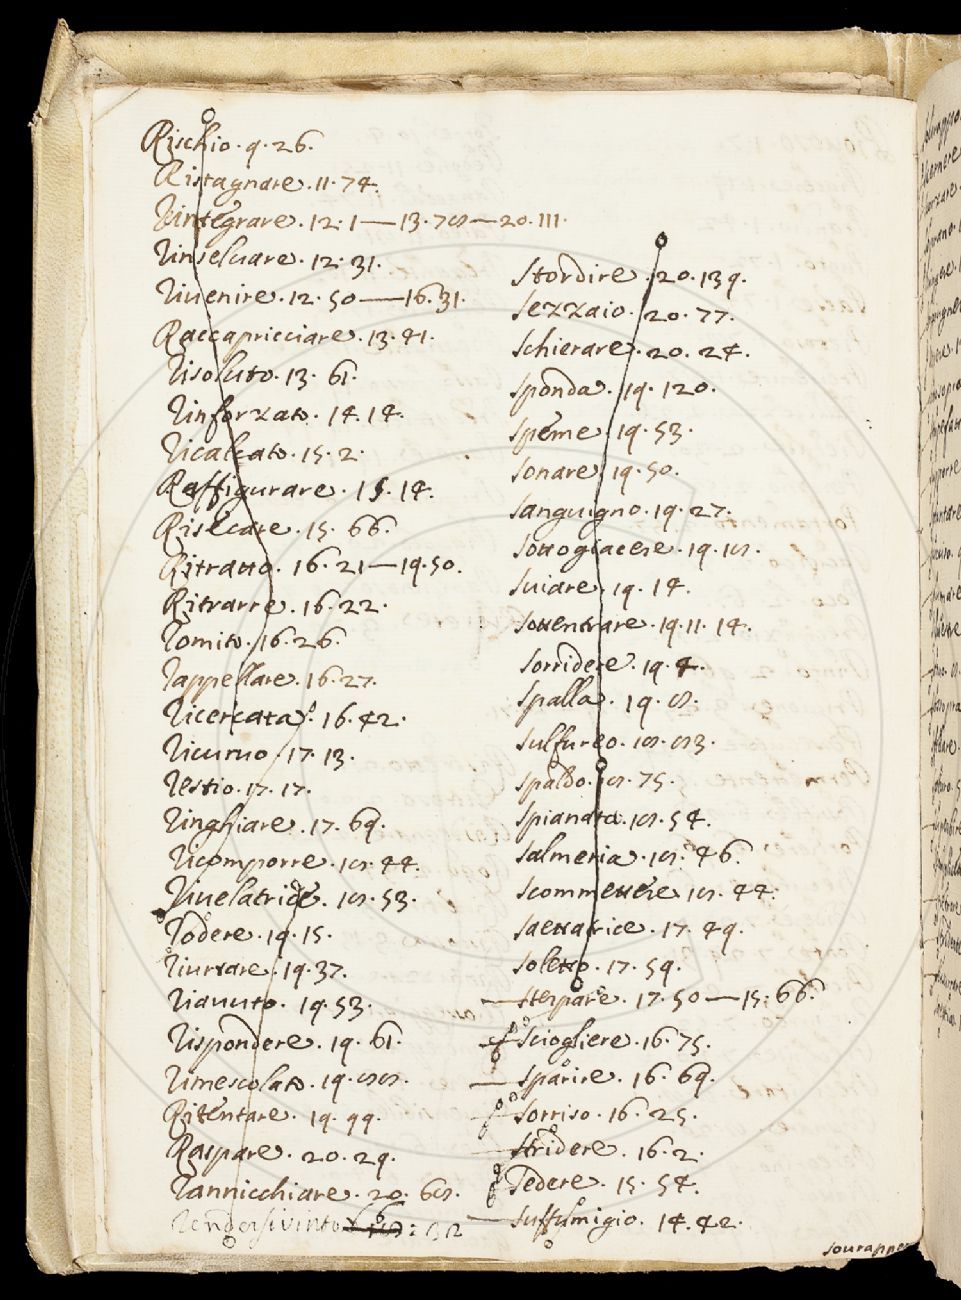 Rischio. 9. 26.
Ristagnare. 11. 74.
Rintegrare. 12. 1 — 13. 78 — 20. 111.
Rinseluare. 12. 31.
Riuenire. 12. 50 — 16. 31.
Raccapricciare. 13. 41.
Risoluto. 13. 61.
Rinforzato. 14. 14.
Ricalcato. 15. 2.
Raffigurare. 15. 14.
Risecare. 15. 66.
Ritratto. 16. 21 — 19. 50.
Ritrarre. 16. 22.
Romito. 16. 26.
Rappellare. 16. 27.
Ricercata. 16. 42.
Ricuruo. 17. 13.
Restio. 17. 17.
Ringhiare. 17. 69.
Ricomporre. 18. 44.
Riuelatrice. 18. 53.
Rodere. 19. 15.
Riurtare. 19. 37.
Riauuto. 19. 53.
Rispondere. 19. 61.
Rimescolato. 19. 88.
Ritentare. 19. 99.
Raspare. 20. 29.
Rannicchiare. 20. 68.
Rendersi vinto
Stordire. 20. 139.
Sezzaio. 20. 77.
Schierare. 20. 24.
Sponda. 19. 120.
Speme. 19. 53.
Sonare. 19. 50.
Sanguigno. 19. 27.
Sottogiacere. 19. 18.
Suiare. 19. 14.
Sottentrare. 19. 11. 14.
Sorridere. 19. 4.
Spalla. 19. 8.
Sulfureo. 18. 83.
Spaldo. 18. 75.
Spianata. 18. 54.
Salmeria. 18. 46.
Scommettere. 18. 44.
Saettatrice. 17. 49.
Soletto. 17. 59.
Sterpare. 17. 50 — 15. 66.
Sciogliere. 16. 75.
Sparire. 16. 69.
Sorriso. 16. 25.
Stridere. 16. 2.
Sedere. 15. 54.
Suffumigio. 14. 42.